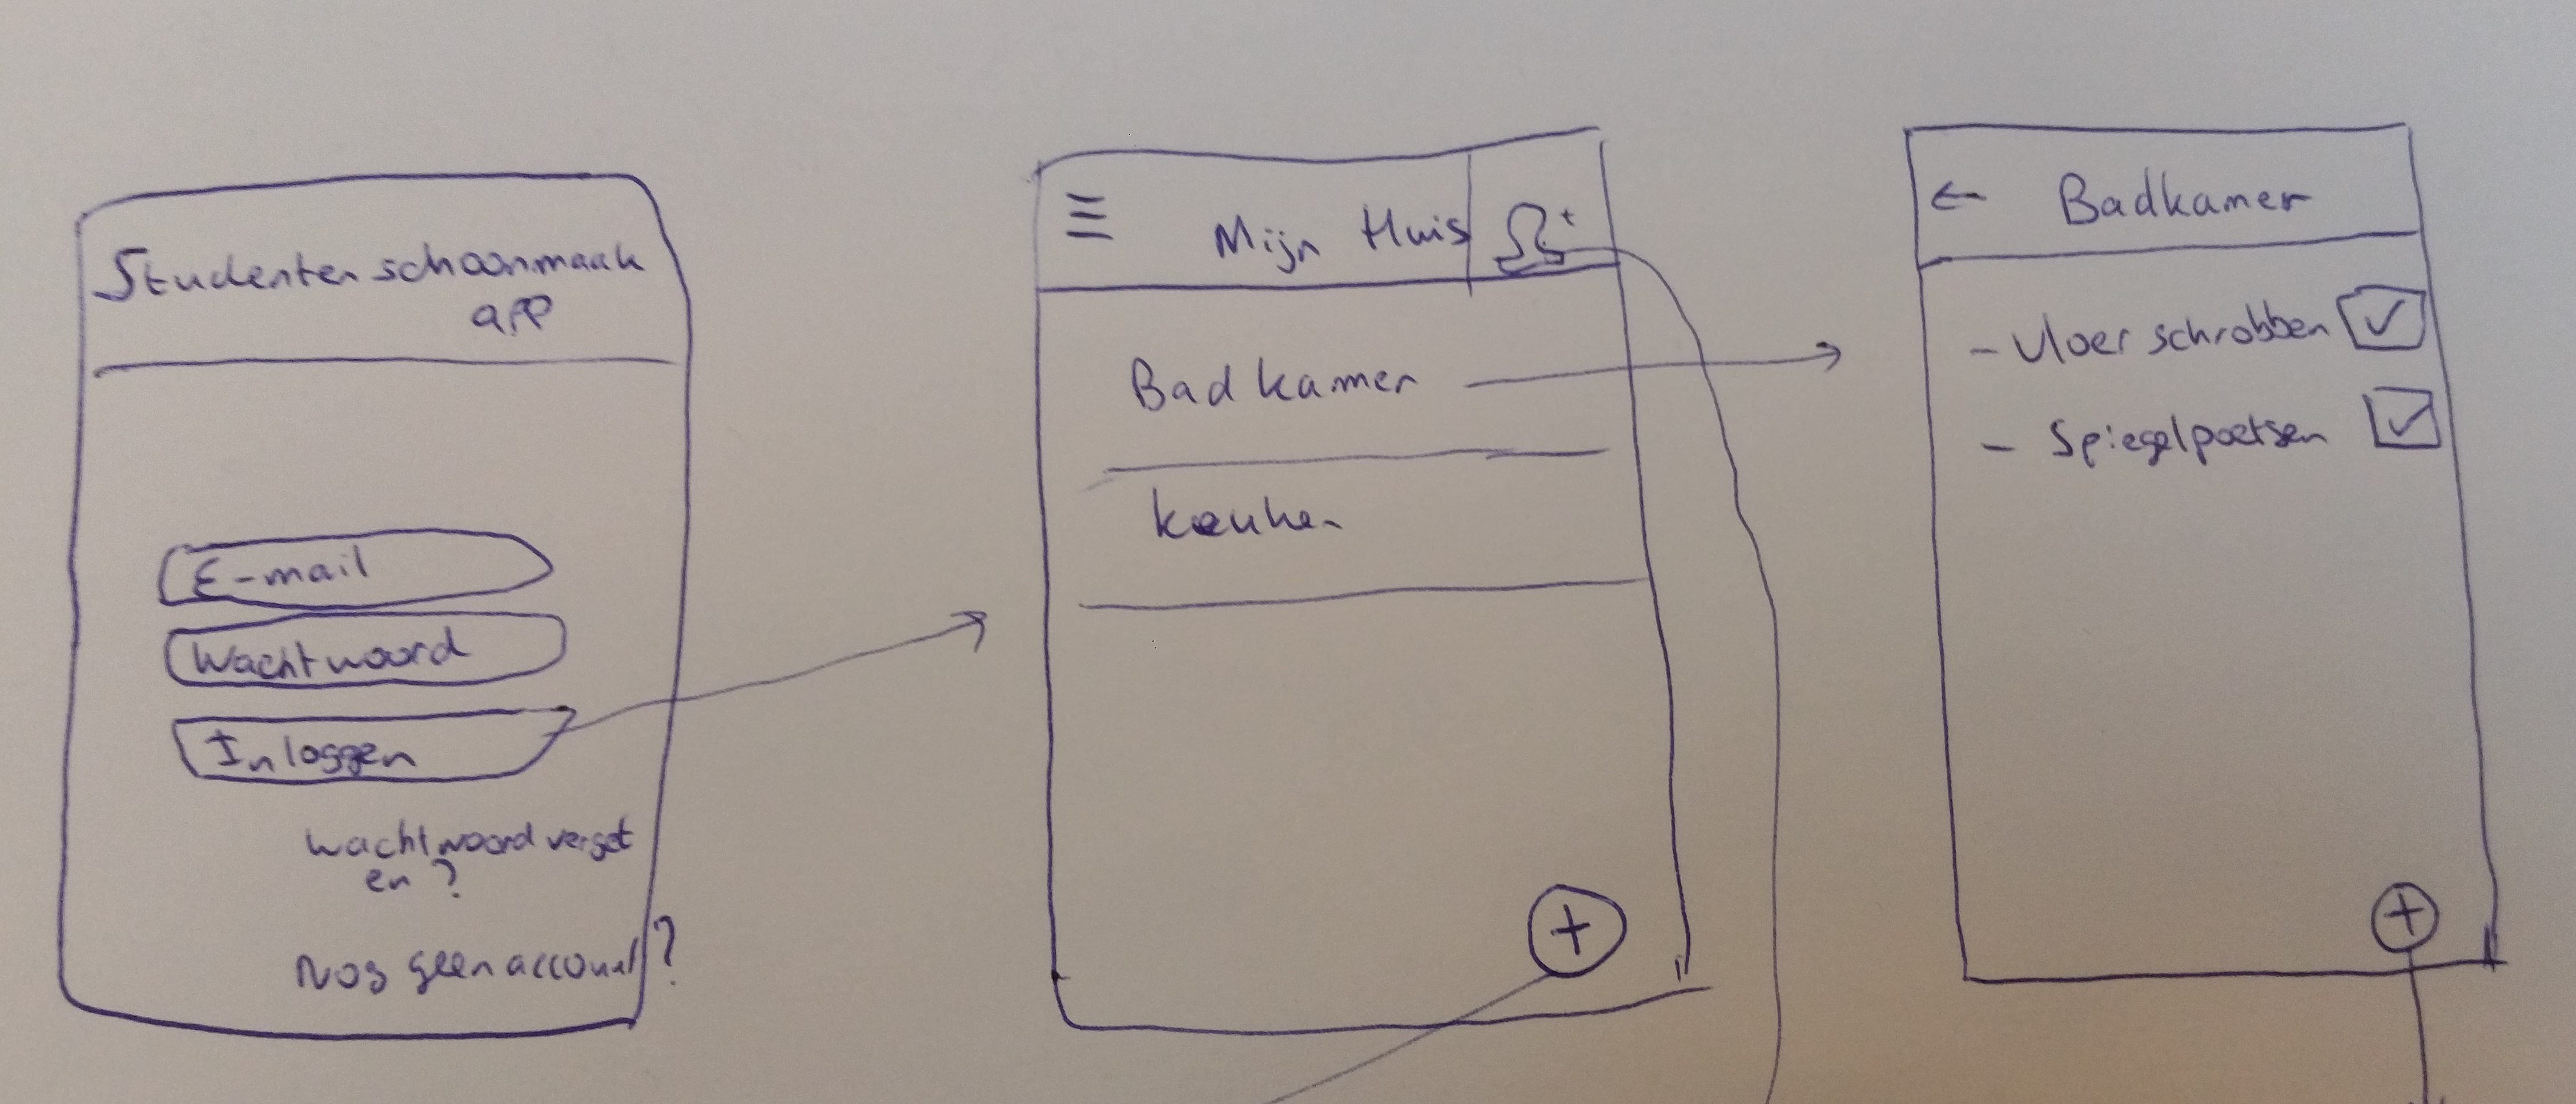 Studenten schoonmaak
app
E-mail
Wachtwoord
Inloggen
Wachtwoord verget
en?
Nog geen account?
Mijn Huis
Badkamer
keuken
← Badkamer
- Vloer schrobben
- Spiegel poetsen